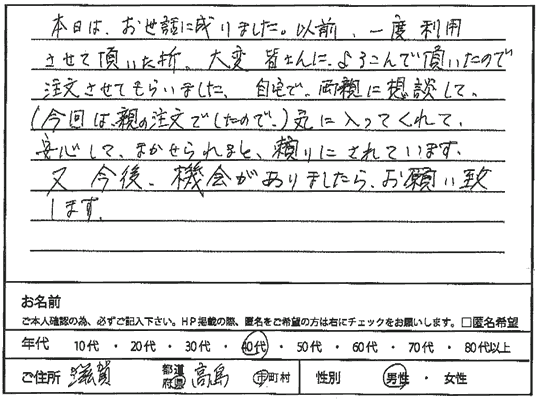 本日は、お世話に成りました。以前、一度利用
させて頂いた折、大変皆さんに、よろこんで頂いたので
注文させてもらいました、自宅で、両親に想談して、
(今回は、親の注文でしたので、)気に入ってくれて、
安心して、まかせられると、頼りにされています。
又 今後、機会がありましたら、お願い致
します。
お名前
ご本人確認の為、必ずご記入下さい。HP掲載の際、匿名をご希望の方は右にチェックをお願いします。 □匿名希望
年代 10代 ・ 20代 ・ 30代 ・ 40代 ・ 50代 ・ 60代 ・ 70代 ・ 80代以上
ご住所 滋賀 都道府県 高島 市町村 性別 男性 ・ 女性